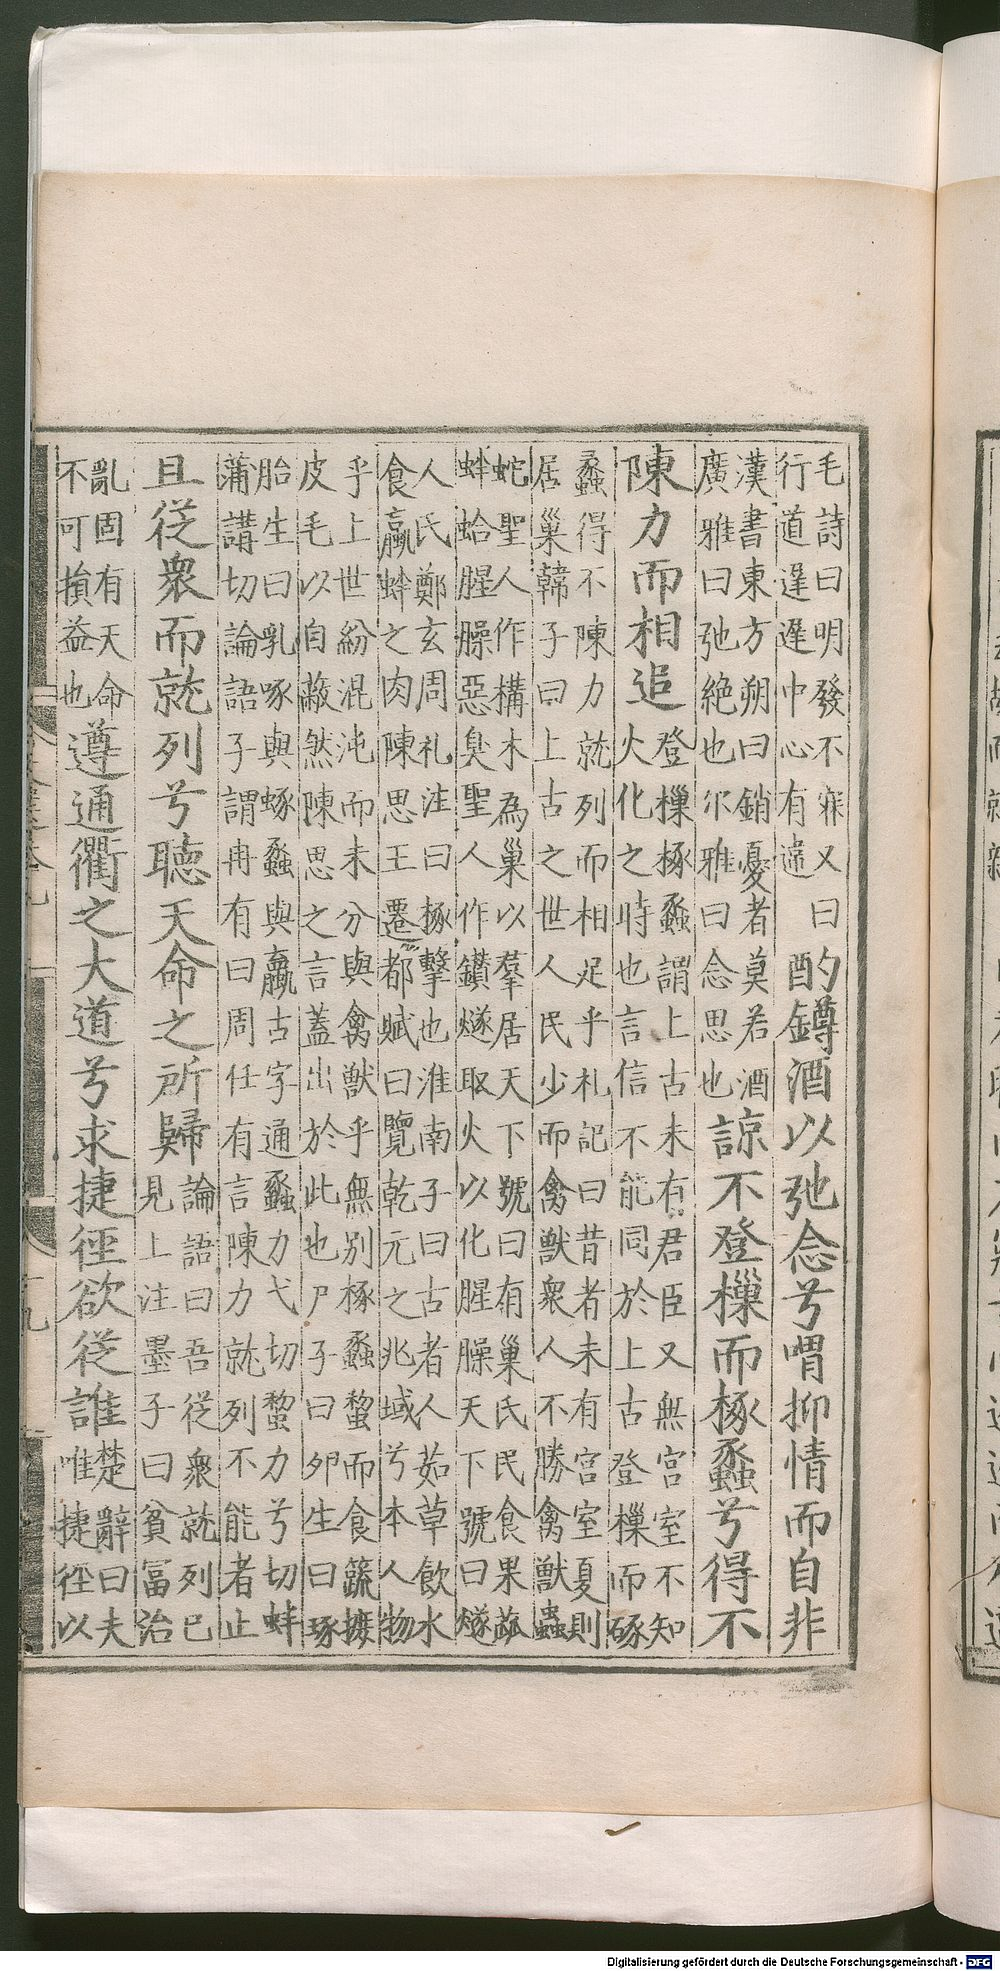 毛詩曰明發不寐又曰行道遲遲中心有違酌鐏酒以弛念兮喟抑情而自非
漢書東方朔曰銷憂者莫若酒廣雅曰弛絶也尓雅曰念思也諒不登樔而椓蠡兮得不
陳力而相追登樔椓蠡謂上古未有君臣又無宮室不知火化之時也言信不能同於上古登樔而硺
蠡得不陳力就列而相足乎礼記曰昔者未有宮室夏則居巢韓子曰上古之世人民少而禽獸衆人不勝禽獸蟲
蛇聖人作構木為巢以羣居天下號曰有巢氏民食果蓏蚌蛤腥臊惡臭聖人作鑽燧取火以化腥臊天下號曰燧
人氏鄭玄周礼注曰椓擊也淮南子曰古者人茹草飲水食蠃蚌之肉陳思王遷都賦曰覽乾元之兆域兮本人物
乎上世紛混沌而未分與禽獸乎無別椓蠡蜊而食蔬摭皮毛以自蔽然陳思之言蓋出於此也尸子曰卵生曰琢
胎生曰乳啄與蠡與蠃古字通蠡力戈切力兮切蚌蒲講切論語子謂冉有曰周任有言陳力就列不能者止
且從衆而就列兮聽天命之所歸論語曰吾從衆就列已見上注墨子曰貧冨治
亂固有天命不可損益也遵通衢之大道兮求捷徑欲從誰楚辭曰夫唯捷徑以
Digitalisierung gefördert durch die Deutsche Forschungsgemeinschaft - DFG